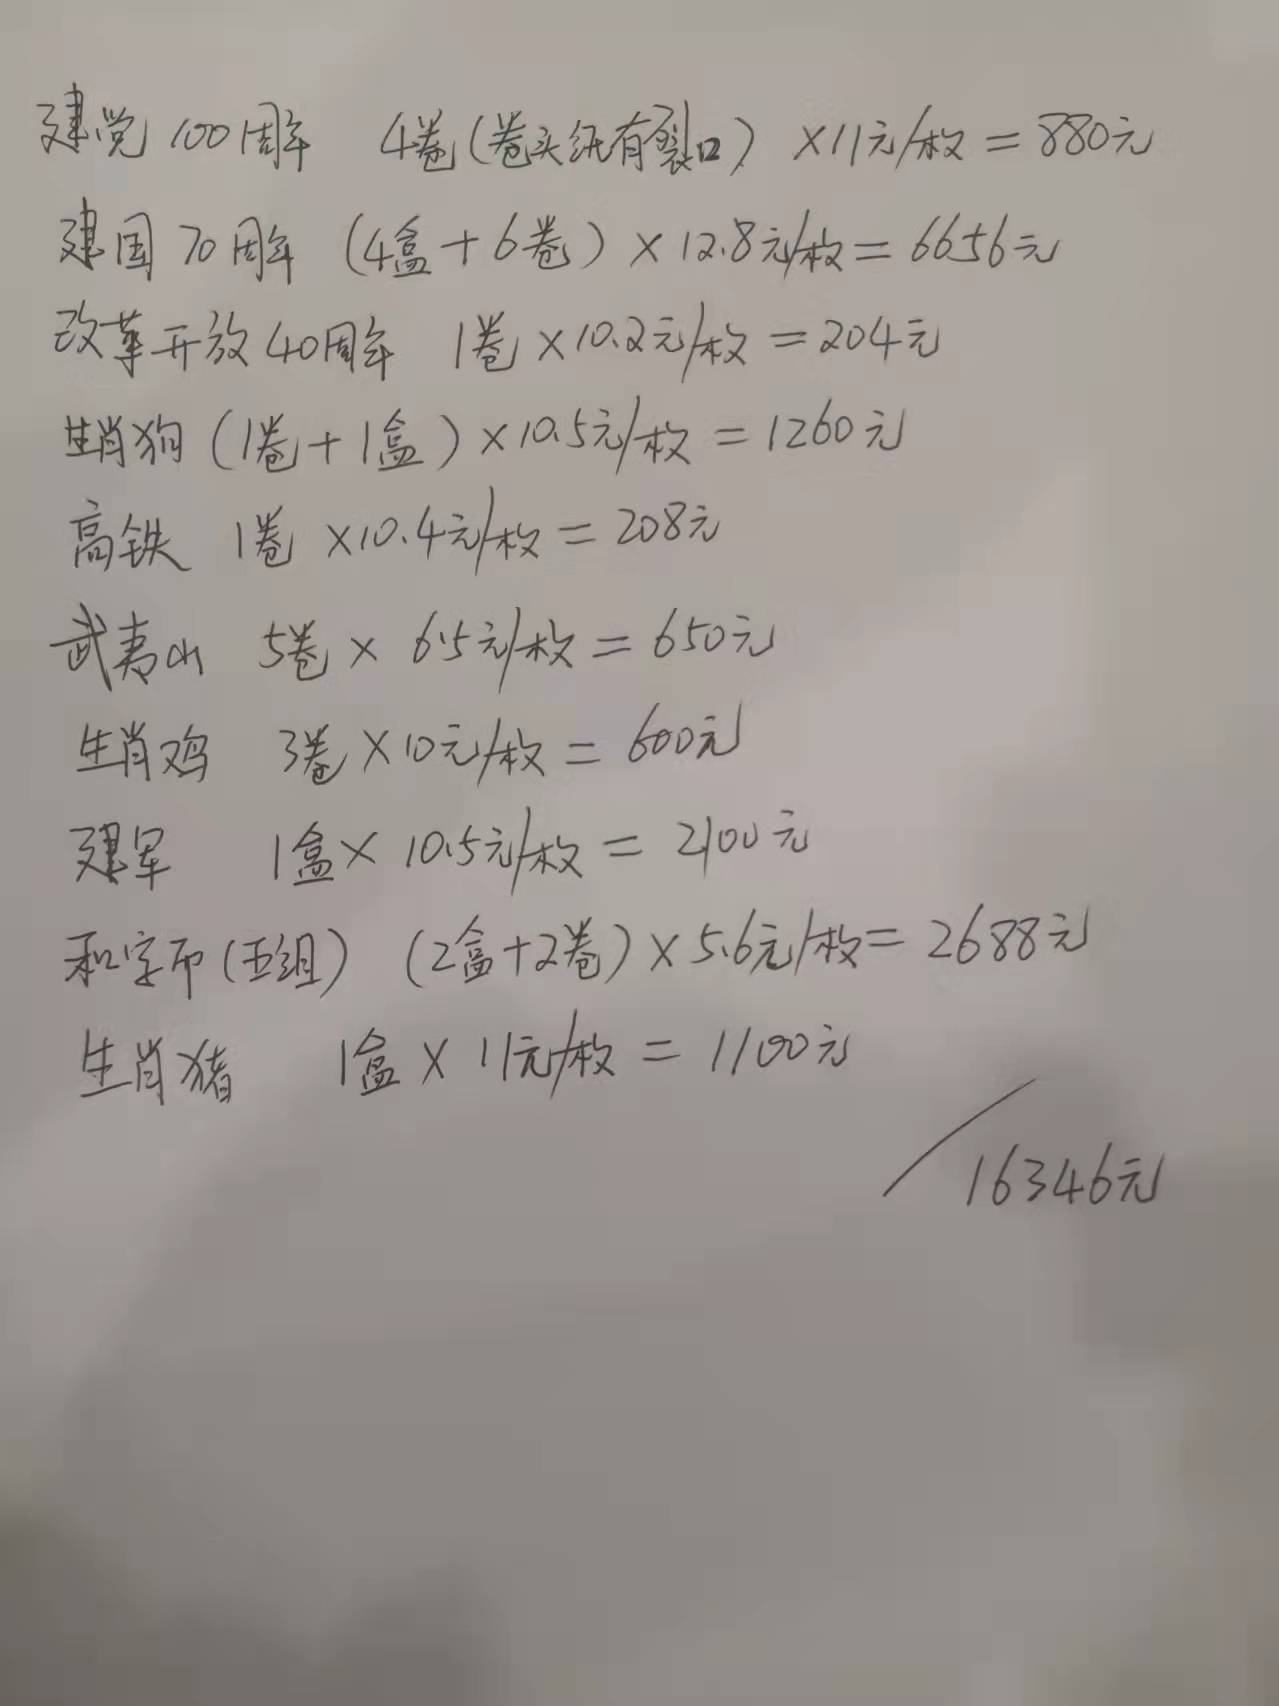 建党100周年 4卷(卷头纸有裂口) ×11元/枚=880元
建国70周年 (4盒+6卷)×12.8元/枚=6656元
改革开放40周年 1卷×10.2元/枚=204元
生肖狗 (1卷+1盒)×10.5元/枚=1260元
高铁 1卷×10.4元/枚=208元
武夷山 5卷× 6.5元/枚=650元
生肖鸡 3卷×10元/枚=600元
建军 1盒× 10.5元/枚=2100元
和字币(五组) (2盒+2卷)×5.6元/枚=2688元
生肖猪 1盒×11元/枚=1100元
16346元